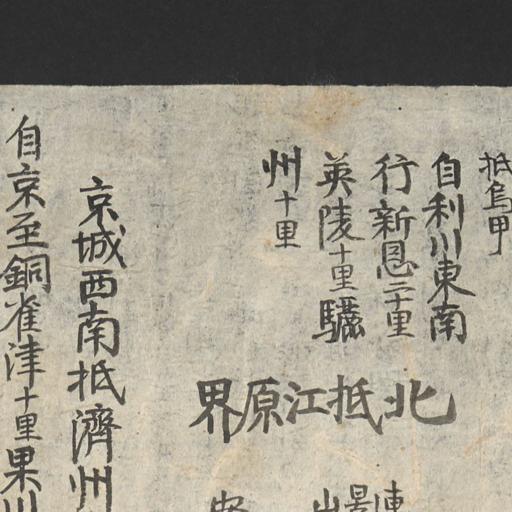 抵烏甲
自利川東南
行新恩二十里
英陵十里驪
州十里
北抵江原界
京城西南抵濟州
自京至銅雀津十里果川